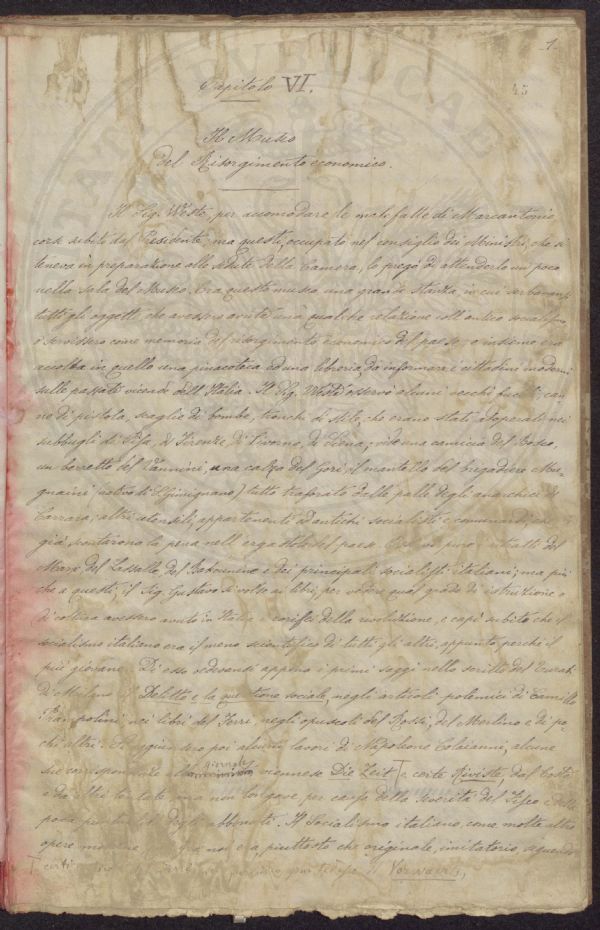 1.
45
Capitolo VI.
Il Museo
del Risorgimento economico.
Il Sig. West, per accomodare le malefatte di Marcantonio
corse subito dal Presidente, ma questi, occupato nel consiglio dei Ministri, che si
teneva in preparazione alle sedute della Camera, lo pregò di attenderlo un poco
nella sala del Museo. Era questo museo una grande stanza in cui serbavansi
tutti gli oggetti che avessero avuto una qualche relazione coll'antico socialismo,
o servissero come memoria del risorgimento economico del paese; e insieme era
accolta in quello una pinacoteca ed una libreria da informare i cittadini moderni
sulle passate vicende dell'Italia. Il Sig. West osservò alcuni vecchi fucili, can
ne di pistola, scaglie di bombe, tronchi di stile, che erano stati adoperati nei
subbugli di Pisa, di Firenze, di Livorno, di Siena; vide una camicia del Bosco,
un berretto del Vannini, una calza del Gori, il mantello del brigadiere
(nativo di S. Giminiano) tutto traforato dalle palle degli anarchici di
Carrara; altri utensili, appartenenti ad antichi socialisti e comunardi, che
già scontarono la pena nell'ergastolo del paese. pure i ritratti del
Marx, del Lassalle, del e dei principali socialisti italiani; ma più
che a questi, il Sig. Gustavo si volse ai libri, per vedere qual grado di istruzione e
di coltura avessero avuto in Italia i corifei della rivoluzione, e capì subito che il
socialismo italiano era il meno scientifico di tutti gli altri, appunto perché il
più giovane. Di esso vedevansi appena i primi saggi nello scritto del Turati
di Milano il Delitto e la questione sociale, negli articoli polemici di Camillo
Prampolini nei libri del Ferri, negli opuscoli del Rossi, del Merlino e di po-
chi altri. Si aggiunsero poi alcuni lavori di Napoleone Colajanni, alcune
sue corrispondenze al giornale viennese Die Zeit e certe Riviste, dal Costa
e da altri tentate ma non per causa della severità del Fisco e della
poca puntualità degli abbonati. Il Socialismo italiano, come molte altre
opere moderne non era piuttosto che originale, imitatorio, seguendo
Vorwaerts,